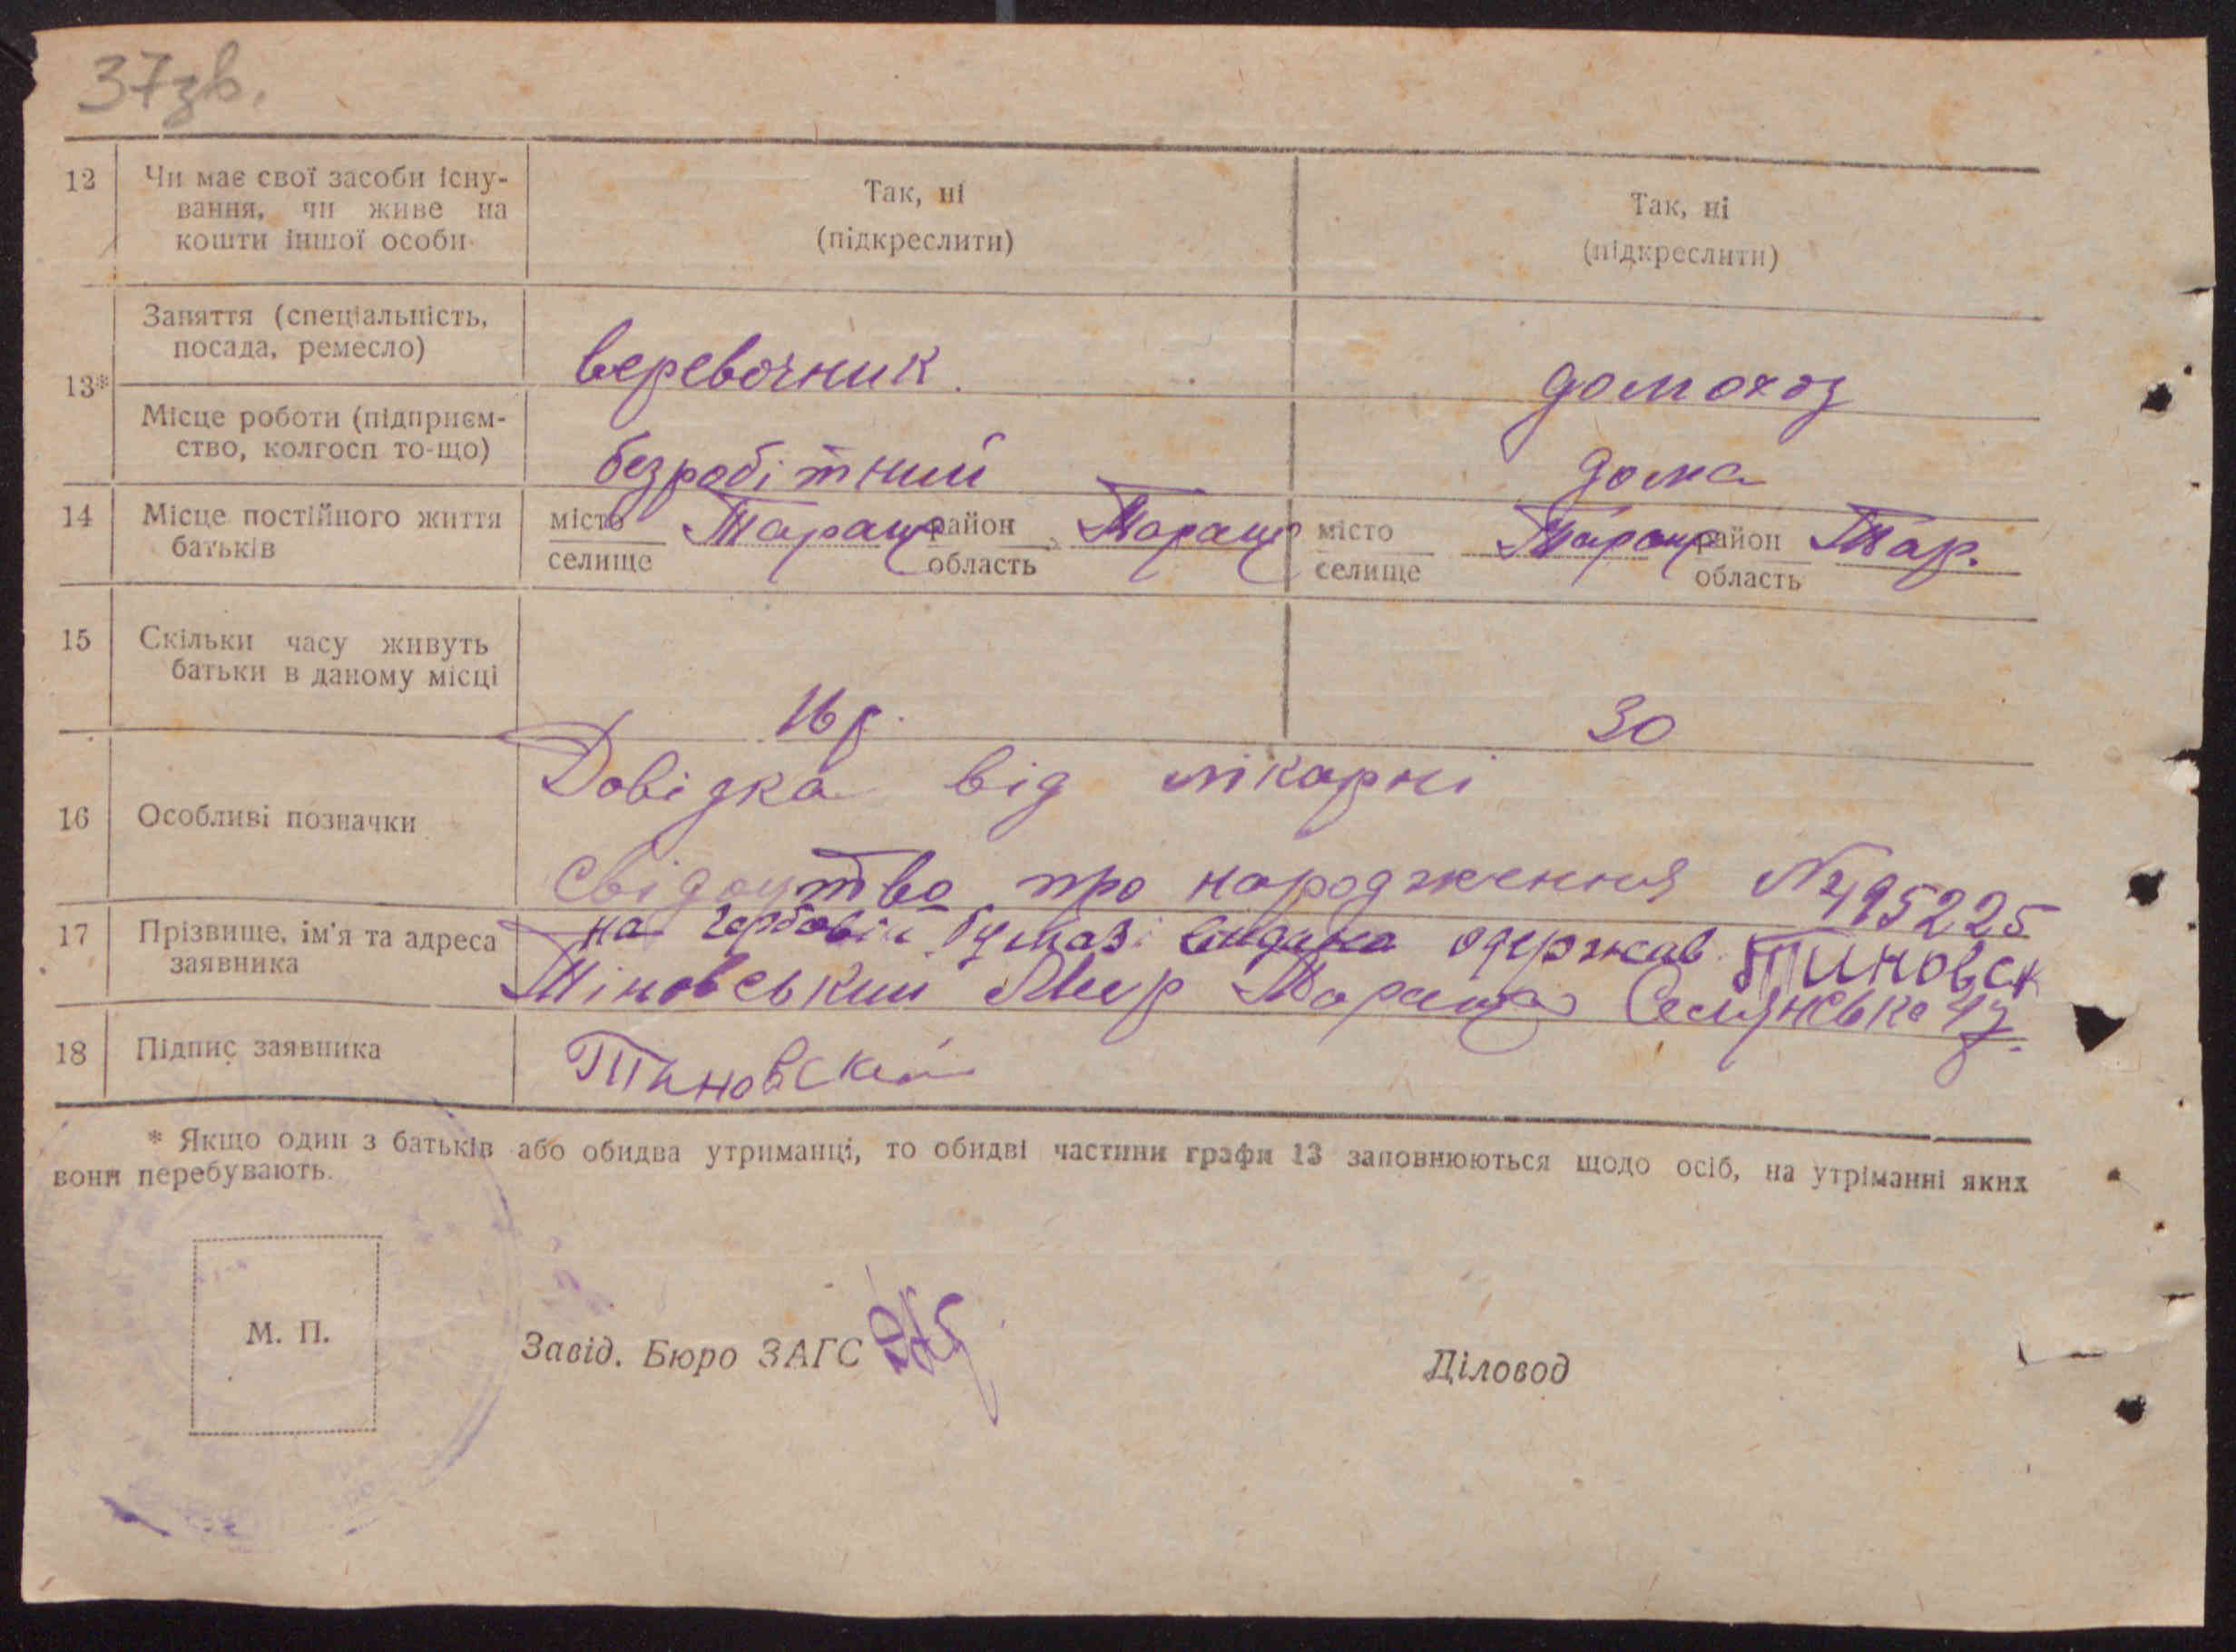 37зв.
12 Чи має свої засоби існу- Так, ні Так, ні
вання, чи живе на (підкреслити) (підкреслити)
кошти іншої особи
13* Заняття (спеціальність, веревочник. домохоз
посада, ремесло)
Місце роботи (підприєм- безробітний дома
ство, колгосп то-що)
14 Місце постійного життя місто Таращ район Таращ місто Таращ район Тар.
батьків селище область селище область
15 Скільки часу живуть
батьки в даному місці 16 р. 30
Довідка від лікарні
16 Особливі позначки
Свідоцтво про народження № 495225
на гербовій бумазі видана одержав Тиновск
17 Прізвище, ім'я та адреса Тіновський Меер Тараща
заявника
18 Підпис заявника Тиновский
* Якщо один з батьків або обидва утриманці, то обидві частини графи 13 заповнюються щодо осіб, на утріманні яких
вони перебувають.
М. П.
Завід. Бюро ЗАГС Діловод